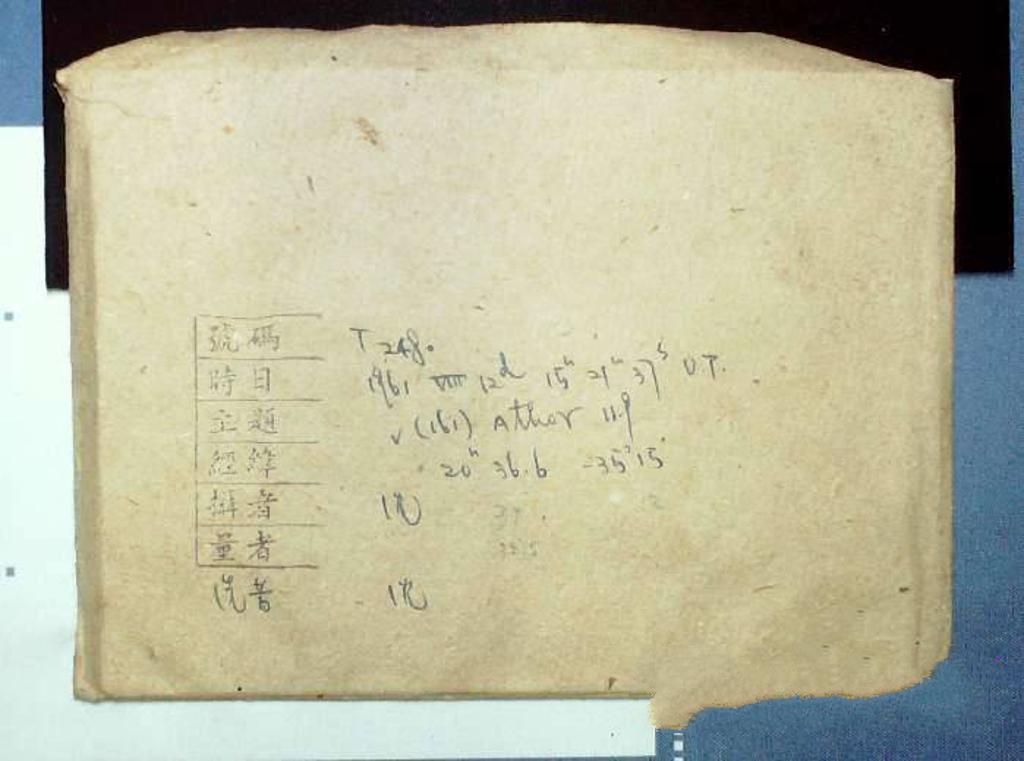 號碼 T 248.
時日 1961 VIII 12d 15h 21m 37s U.T.
主題 (161) Athor 11.9
經緯 20h 36.6 -35°15'
攝者 沈
量者
洗者 沈